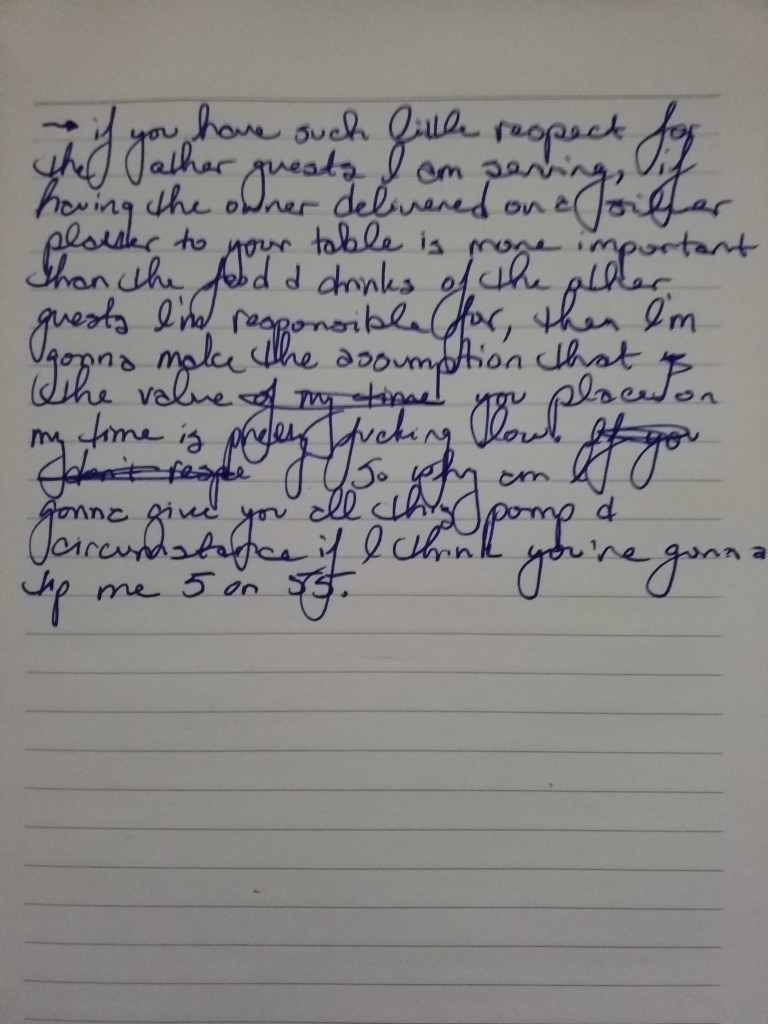 → if you have such little respect for
the other guests I am serving, if
having the owner delivered on a silver
platter to your table is more important
than the food & drinks of the other
guests I'm responsible for, then I'm
gonna make the assumption that
the value of my time you placed on
my time is pretty fucking low. If you
don't respe So why am I
gonna give you all this pomp &
circumstance if I think you're gonna
tip me 5 on 55.